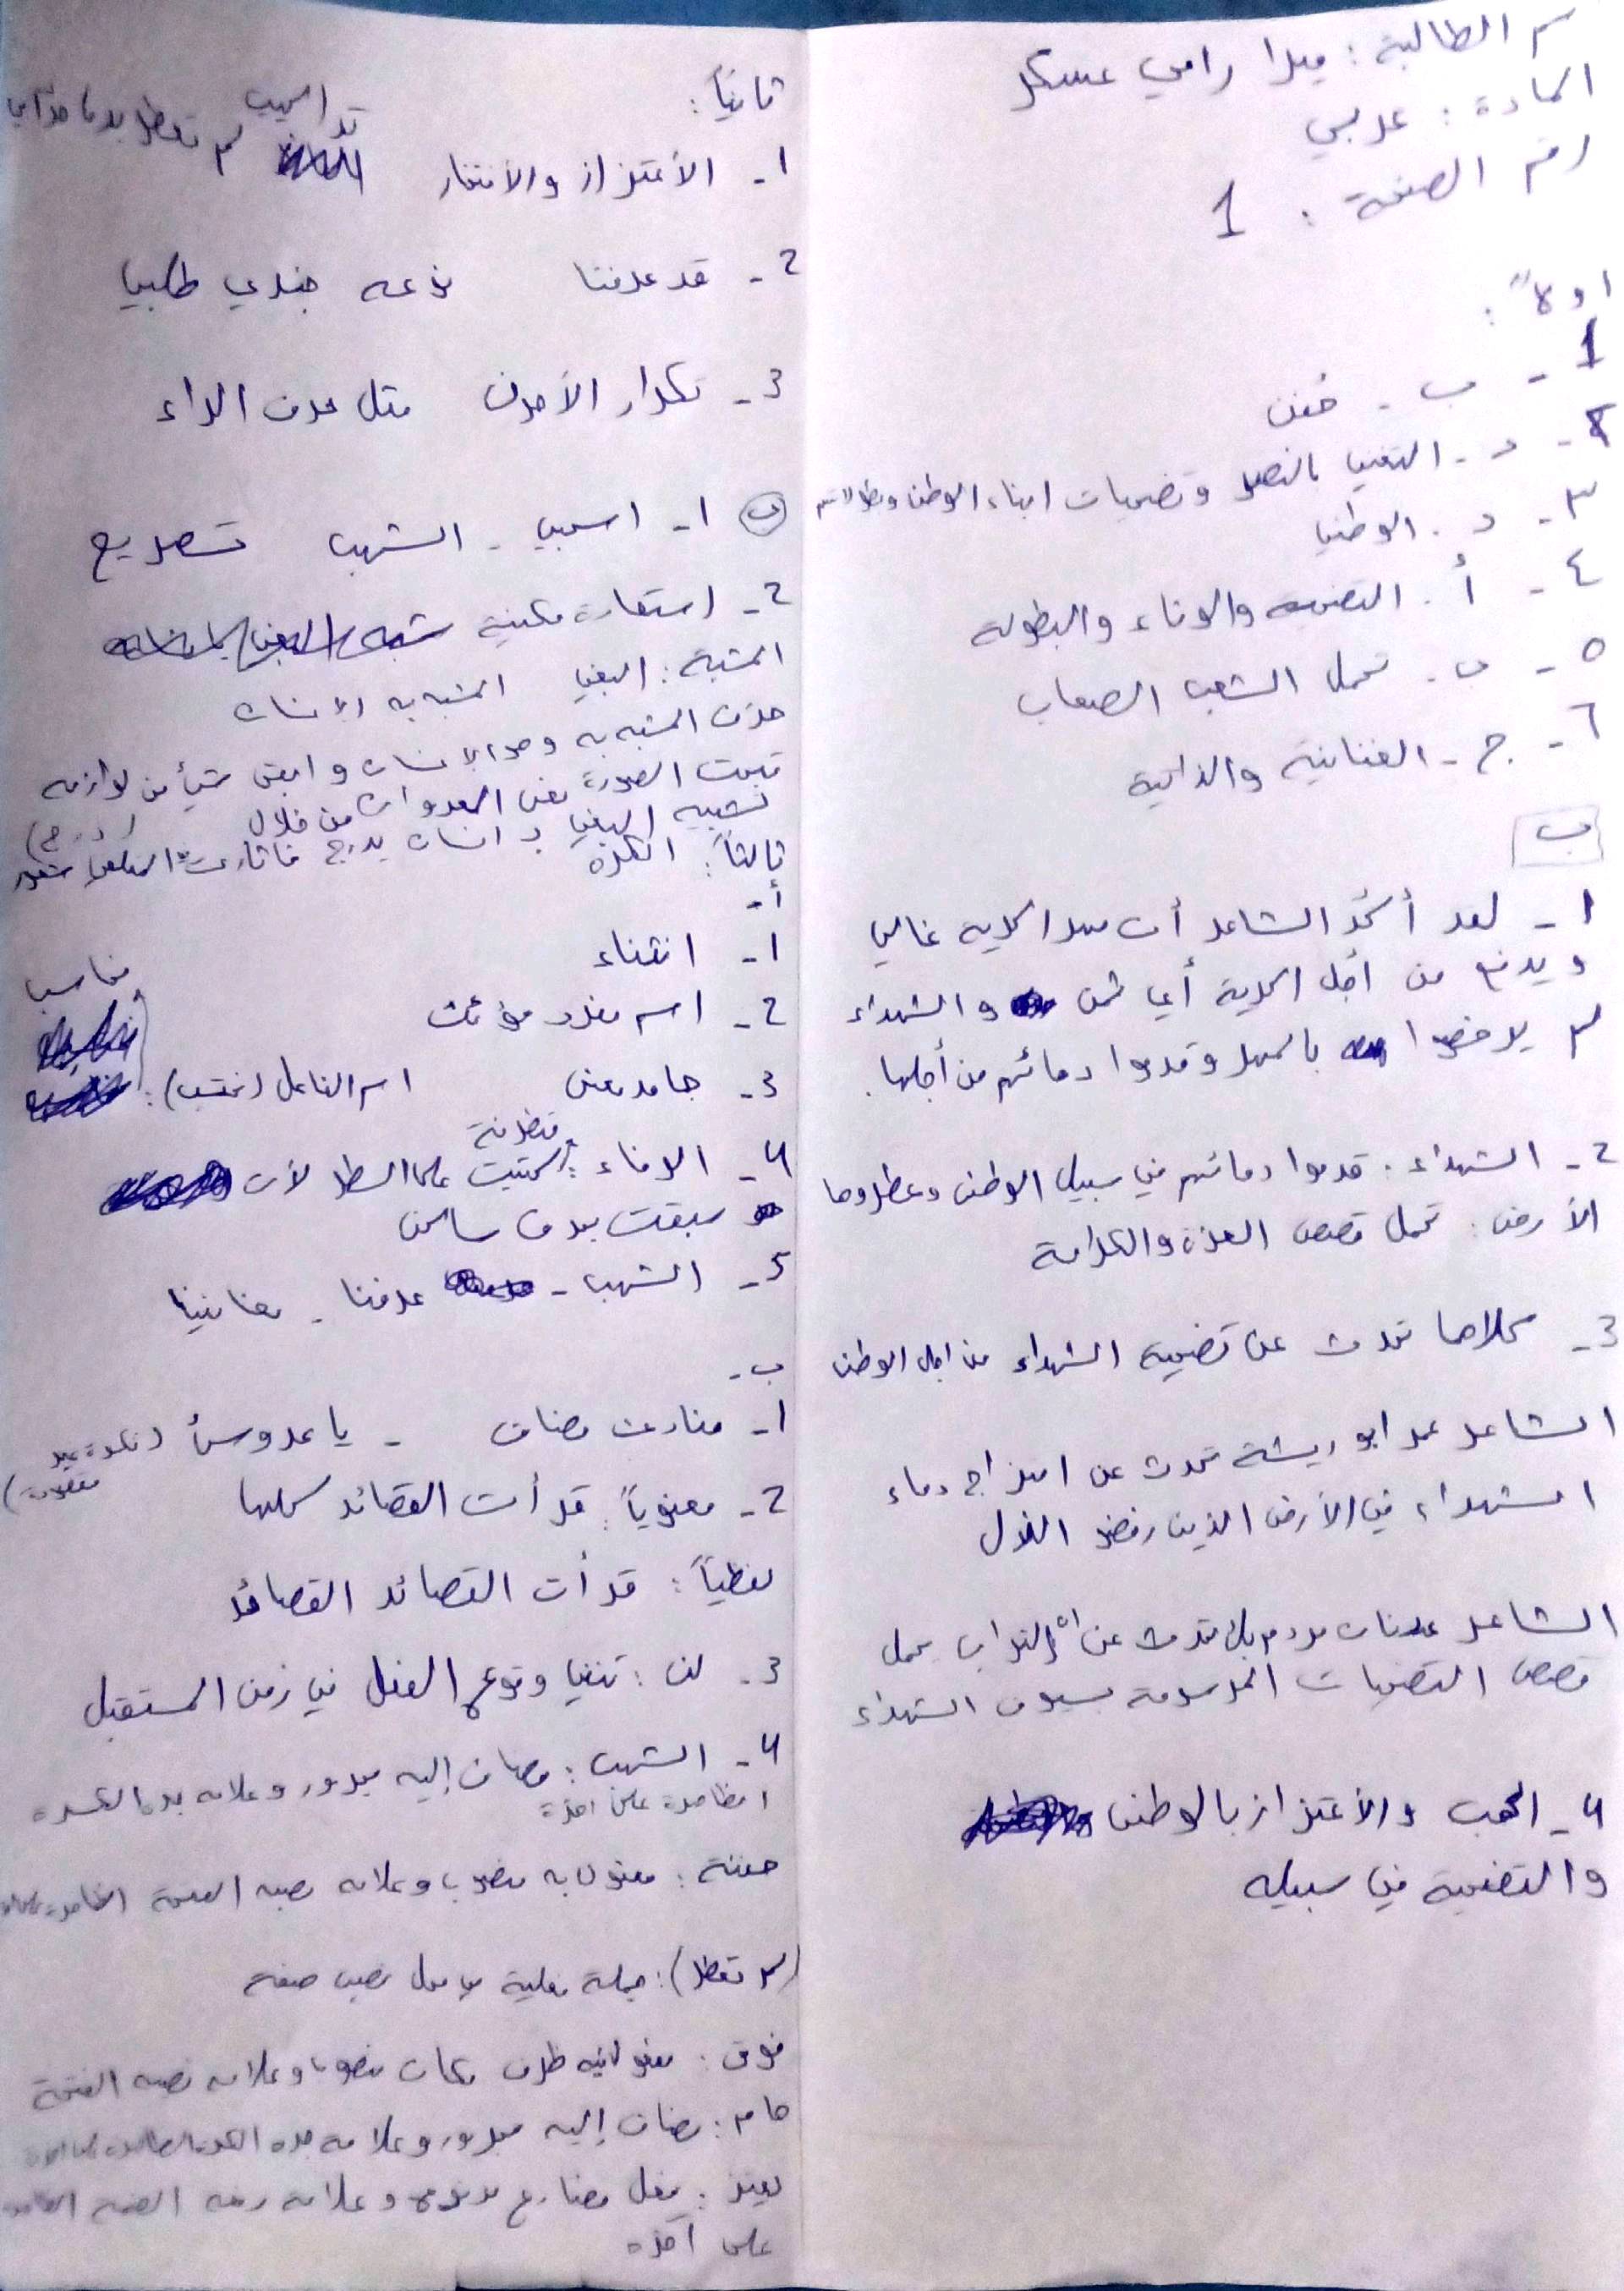 سم الطالبة : ميرا رامي عسكر
المادة : عربي
رقم الصفحة : 1
اولاً :
1 - ب - خفن
2 - د - التغني بالنصر وتضحيات ابناء الوطن وبطولاتهم
٣ - د . الوطني
٤ - أ . التضحية والوفاء والبطولة
٥ - ب . تحمل الشعب الصعاب
٦ - ج - الغنائية والذاتية
ب
1 - لقد أكد الشاعر أن مهر الحرية غالي
ويدفع من أجل الحرية أي ثمن والشهداء
لم يرخصوا بالمهر وقدموا دمائهم من أجلها .
2 - الشهداء : قدموا دمائهم في سبيل الوطن وعطروها
الأرض : تحمل قصص العزة والكرامة
3 - كلاهما تحدث عن تضحية الشهداء من اجل الوطن
الشاعر عمر ابو ريشة تحدث عن امتزاج دماء
الشهداء في الأرض الذين رفضو الذل
الشاعر عدنان مردم بك تحدث عن ان التراب يحمل
قصص التضحيات المرسومة بسيوف الشهداء
4 - الحب والأعتزاز بالوطن
والتضحية في سبيله
ثانياً :
1 - الأعتزاز والأفتخار
لم تعطر بدما
2 - قد عرفنا نوعه خبري طلبي
3 - تكرار الأحرف مثل حرف الراء
ب 1 - اسحبي - الشهب تصريع
2 - استعارة مكنية
المشبه : البغي المشبه به الانسان
حذف المشبه به وهو الانسان وابقى شيأ من لوازمه
(درج)
قبحت الصورة معنى العدوان من خلال
تشبيه البغي بانسان يدرج فاثارت المتلقي شعور
الكره
ثالثاً :
أ -
1 - انتقاء
2 - اسم مفرد مؤنث
3 - جامد معنى اسم الفاعل ( ) : مناسب
4 - الوفاء : متطرفة كتبت على السطر لأن
سبقت بحرف ساكن
5 - الشهب - عرفنا - مغانينا
ب -
1 - منادى مضاف - يا عروسُ (نكرة غير
مقصودة)
2 - معنوياً : قرأت القصائد كلها
لفظياً : قرأت القصائد القصائد
3 - لن : تنفي وقوع الفعل في زمن المستقبل
4 - الشهب : مضاف إليه مجرور وعلامه جره الكسرة
الظاهرة على اخره
حفنة : مفعول به منصوب وعلامه نصبه الفتحة الظاهرة
(لم تعطر) : جملة فعلية في محل نصب صفة
فوق : مفعول فيه ظرف مكان منصوب وعلامه نصبه الفتحة
هام : مضاف إليه مجرور وعلامة جره الكسرة الظاهرة
: فعل مضارع مرفوع وعلامة رفعه الضمة الظاهرة
على آخره